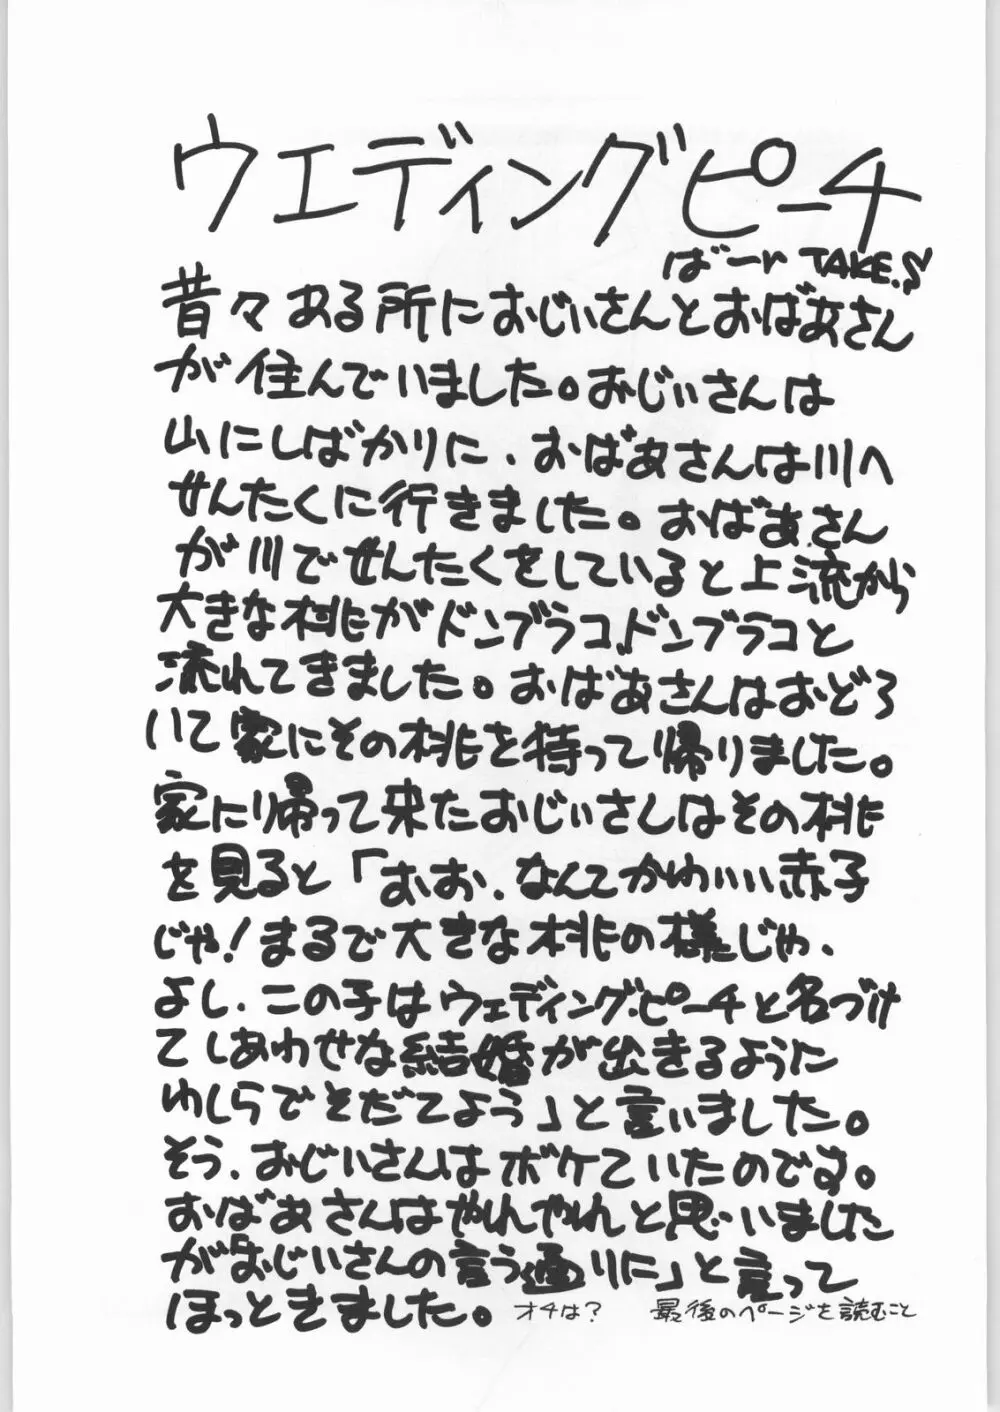 ウエディングピーチ
ばーr TAKE.S
昔々ある所におじいさんとおばあさん
が住んでいました。おじいさんは
山にしばかりに、おばあさんは川へ
せんたくに行きました。おばあさん
が川でせんたくをしていると上流から
大きな桃がドンブラコ、ドンブラコと
流れてきました。おばあさんはおどろ
いて家にその桃を持って帰りました。
家に帰って来たおじいさんはその桃
を見ると「おお、なんてかわいい赤子
じゃ!まるで大きな桃の様じゃ、
よし、この子はウェディング・ピーチと名づけ
てしあわせな結婚が出きるように
わしらでそだてよう」と言いました。
そう、おじいさんはボケていたのです。
おばあさんはやれやれと思いました
が「おじいさんの言う通りに」と言って
ほっときました。
オチは? 最後のページを読むこと